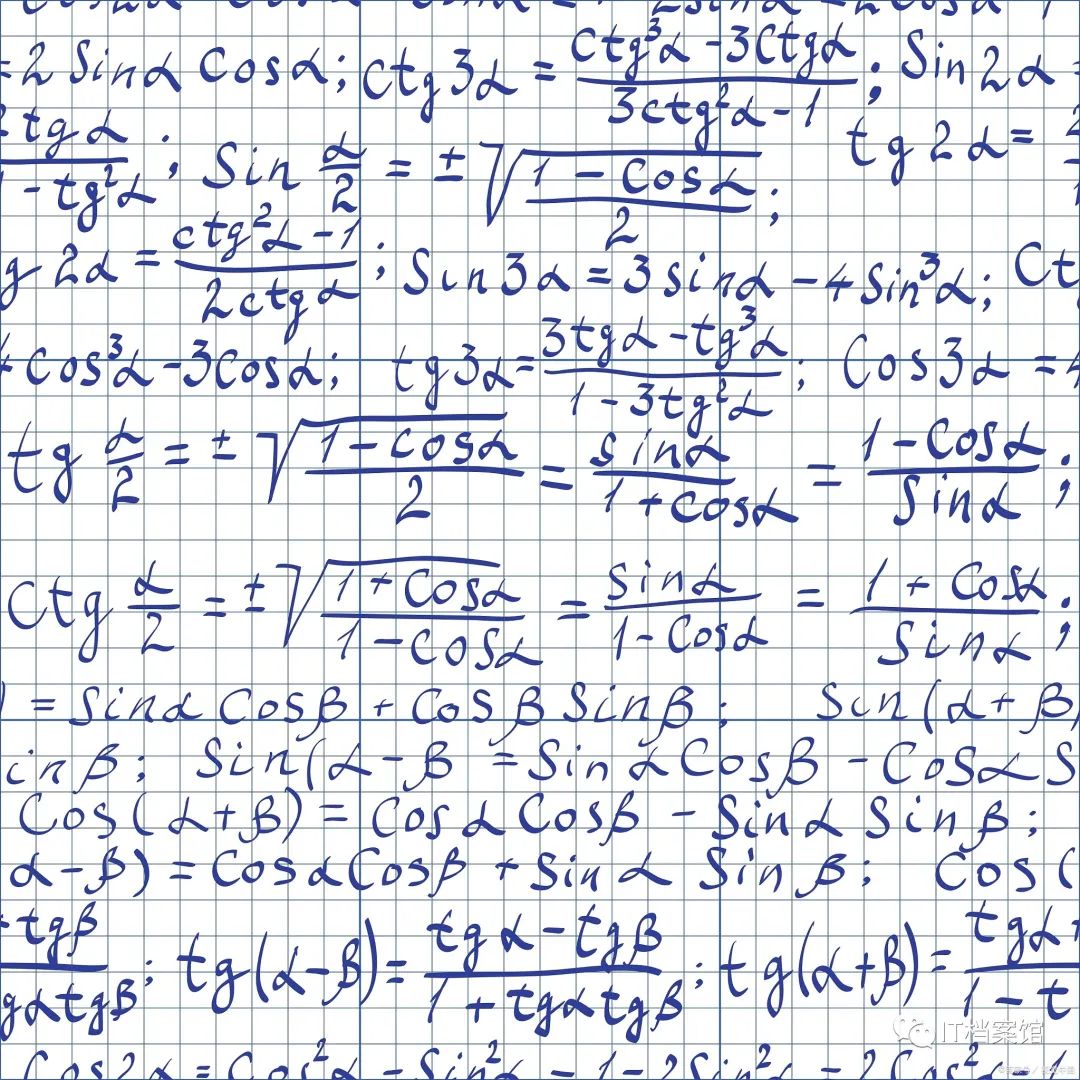 = 2 Sinα Cosα; ctg3α = (ctg³α - 3Ctgα)/(3ctg²α - 1); Sin2α =
tgα/(1 - tg²α); Sin α/2 = ±√((1 - Cosα)/2); tg2α =
g2α = (ctg²α - 1)/(2ctgα); Sin3α = 3sinα - 4Sin³α; Ct
4Cos³α - 3Cosα; tg3α = (3tgα - tg³α)/(1 - 3tg²α); Cos3α = 4
tg α/2 = ±√((1 - cosα)/2) = sinα/(1 + cosα) = (1 - Cosα)/Sinα;
Ctg α/2 = ±√((1 + Cosα)/(1 - cosα)) = sinα/(1 - Cosα) = (1 + Cosα)/Sinα;
) = Sinα Cosβ + Cosβ Sinβ; Sin(α + β)
inβ; Sin(α - β = Sinα Cosβ - Cosα S
Cos(α + β) = Cosα Cosβ - Sinα Sinβ;
α - β) = Cosα Cosβ + Sinα Sinβ; Cos(
tgβ/gαtgβ; tg(α - β) = (tgα - tgβ)/(1 + tgαtgβ); tg(α + β) = (tgα +)/(1 - t
Cos2α = Cos²α - Sin²α = 1 - 2Sin²α = 2Cos²α - 1
IT档案馆